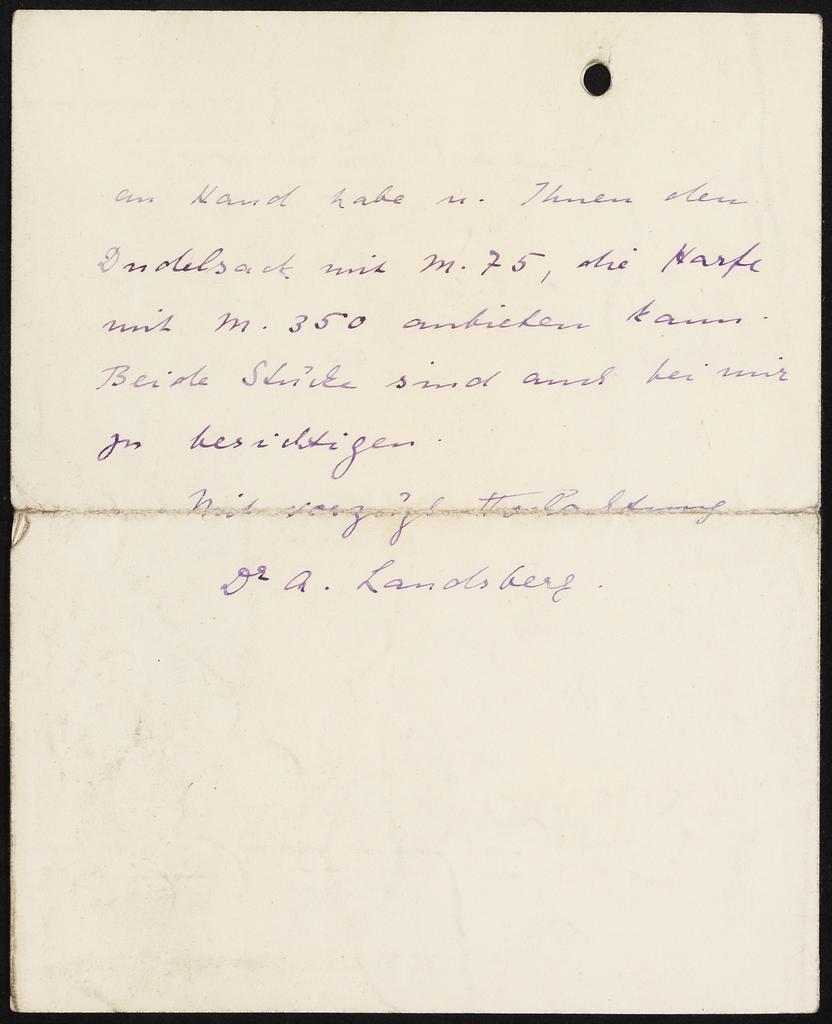 an Hand habe u. Ihnen den
Dudelsack mit M. 75, die Harfe
mit M. 350 anbieten kann.
Beide Stücke sind auch bei mir
zu besichtigen.
Mit vorzügl Hochachtung
Dr A. Landsberg.